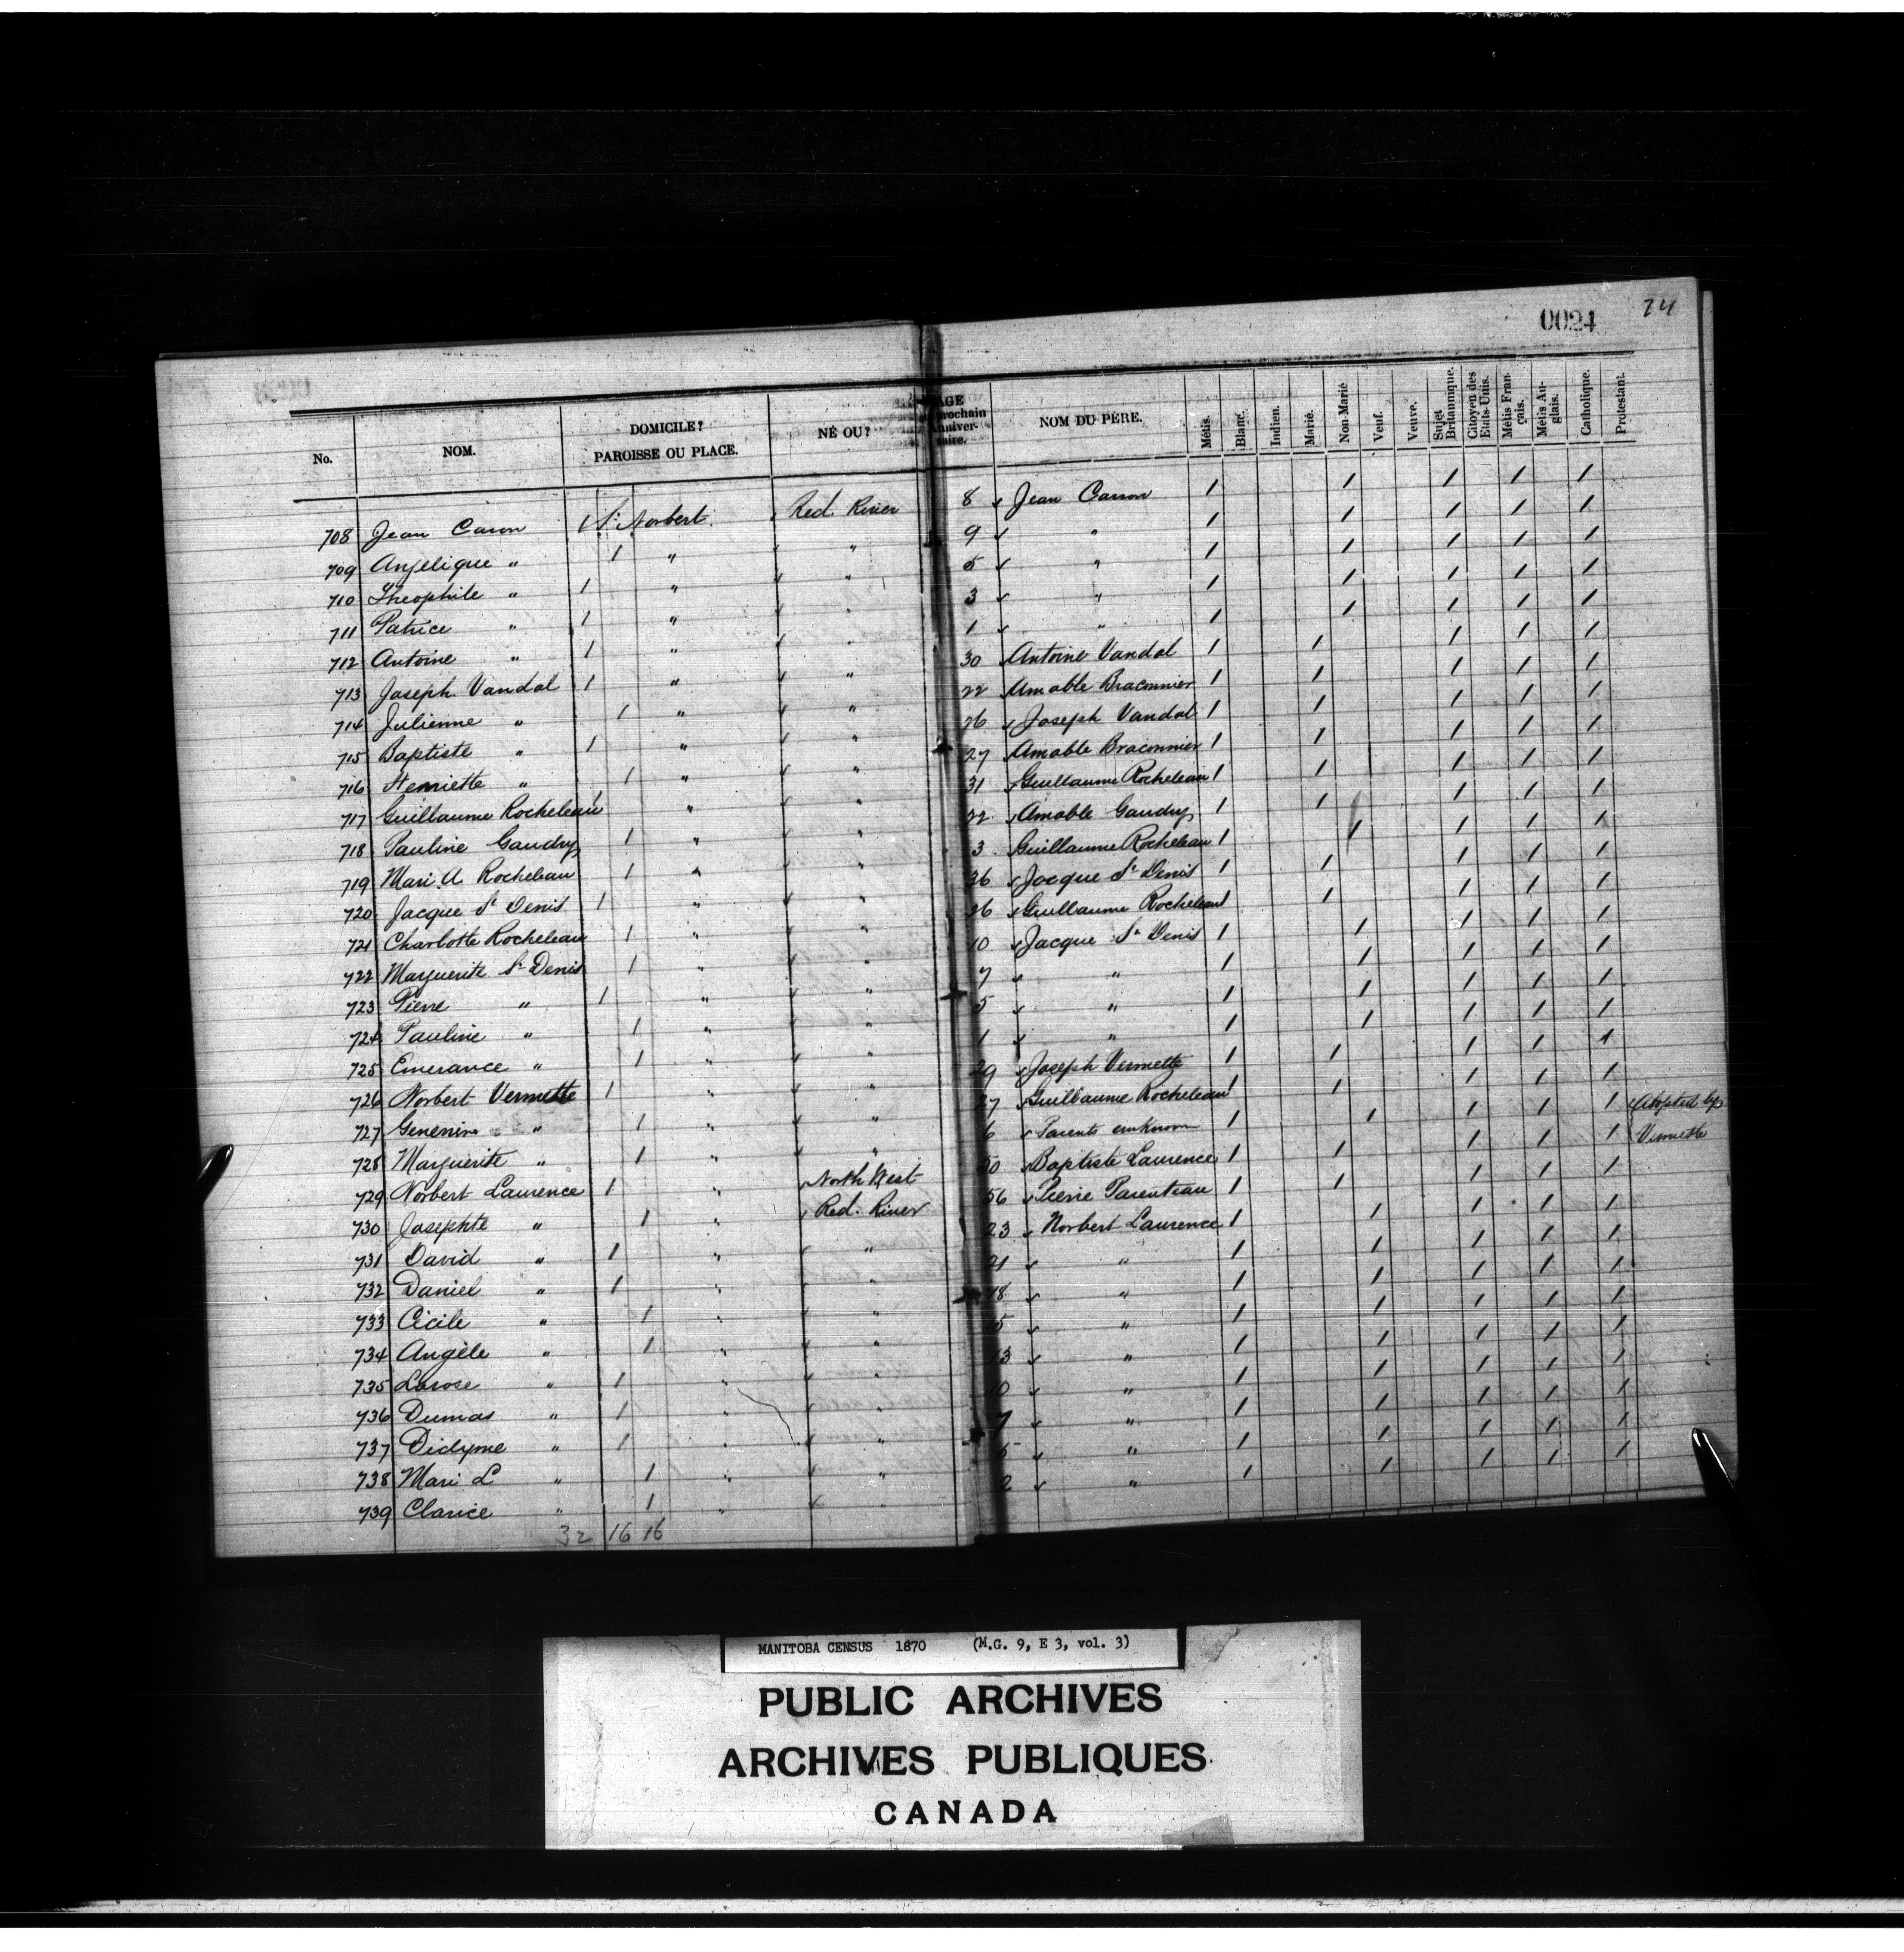 0024 24
No. NOM. DOMICILE? PAROISSE OU PLACE. NÉ OU? AGE prochain Anniversaire. NOM DU PÈRE. Métis. Blanc. Indien. Marié. Non Marié Veuf. Veuve. Sujet Britannique. Citoyen des Etats-Unis. Métis Français. Métis Anglais. Catholique. Protestant.
708 Jean Caron 1 St Norbert Red River 8 Jean Carron 1 1 1 1 1
709 Angelique " 1 " " 9 " 1 1 1 1 1
710 Theophile " 1 " " 5 " 1 1 1 1 1
711 Patrice " 1 " " 3 " 1 1 1 1 1
712 Antoine " 1 " " 1 " 1 1 1 1 1
713 Joseph Vandal 1 " " 30 Antoine Vandal 1 1 1 1 1
714 Julienne " 1 " " 22 Amable Braconnier 1 1 1 1 1
715 Baptiste " 1 " " 26 Joseph Vandal 1 1 1 1 1
716 Henriette " 1 " " 27 Amable Braconnier 1 1 1 1 1
717 Guillaume Rocheleau 1 " " 31 Guillaume Rocheleau 1 1 1 1 1
718 Pauline Gaudry 1 " " 22 Amable Gaudry 1 1 1 1 1
719 Mari A Rocheleau 1 " " 3 Guillaume Rocheleau 1 1 1 1 1
720 Jacque St Denis 1 " " 36 Jacque St Denis 1 1 1 1 1
721 Charlotte Rocheleau 1 " " 26 Guillaume Rocheleau 1 1 1 1 1
722 Marguerite St Denis 1 " " 10 Jacque St Denis 1 1 1 1 1
723 Pierre " 1 " " 7 " 1 1 1 1 1
724 Pauline " 1 " " 5 " 1 1 1 1 1
725 Emerance " 1 " " 1 " 1 1 1 1 1
726 Norbert Vermette 1 " " 29 Joseph Vermette 1 1 1 1 1
727 " 1 " " 27 Guillaume Rocheleau 1 1 1 1 1
728 Marguerite " 1 " " 6 Parents unknown 1 1 1 1 1 Adopted by Vermette
729 Norbert Laurence 1 " North West 50 Baptiste Laurence 1 1 1 1 1
730 Josephte " 1 " Red River 56 Pierre Parenteau 1 1 1 1 1
731 David " 1 " " 23 Norbert Laurence 1 1 1 1 1
732 Daniel " 1 " " 21 " 1 1 1 1 1
733 Cicile " 1 " " 18 " 1 1 1 1 1
734 Angèle " 1 " " 15 " 1 1 1 1 1
735 Larose " 1 " " 13 " 1 1 1 1 1
736 Dumas " 1 " " 10 " 1 1 1 1 1
737 Didyme " 1 " " 7 " 1 1 1 1 1
738 Mari L " 1 " " 5 " 1 1 1 1 1
739 Clarice " 1 " 2 " 1 1 1 1 1
32 16 16
MANITOBA CENSUS 1870 (M.G. 9, E 3, vol. 3)
PUBLIC ARCHIVES
ARCHIVES PUBLIQUES
CANADA